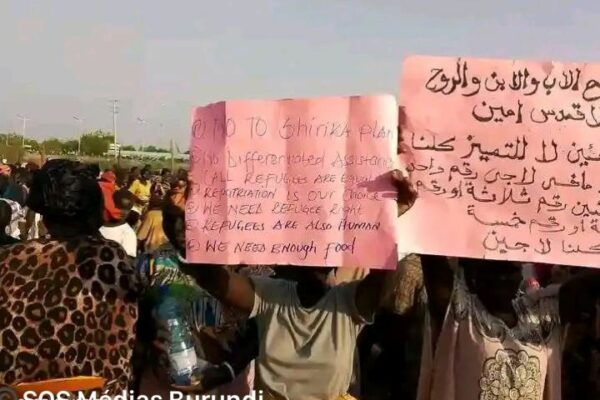 NO TO Shirika PLAN
No Differentiated Assistance
ALL REFUGEES ARE EQUAL
REPATRIATION IS OUR Choice
WE NEED REFUGEE Right
REFUGEES ARE ALSO HUMAN
WE NEED ENOUGH Food
الاب والابن والروح
القدس امين
لا للتميز كلنا
مافي لاجي رقم واحد
رقم ثلاثة او رقم
او رقم خمسة
كلنا لاجين
SOS Médias Burundi